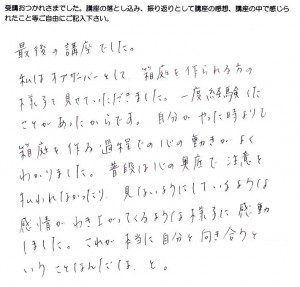 受講おつかれさまでした。講座の落とし込み、振り返りとして講座の感想、講座の中で感じら
れたこと等ご自由にご記入下さい。
最後の講座でした。
私はオブザーバーとして、箱庭を作られる方の
様子を見せていただきました。一度経験した
ことがあったからです。自分がやった時よりも
箱庭を作る過程での心の動きがよく
わかりました。普段は心の奥底で注意を
払われなかったり、見ないようにしているような
感情がわき上がってくるような様子に感動
しました。これが本当に自分と向き合うと
いうことなんだな、と。